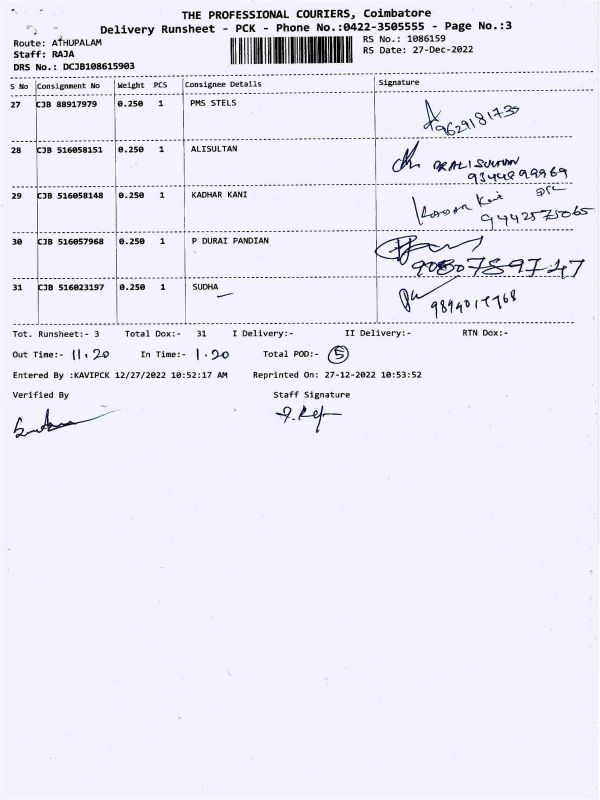 THE PROFESSIONAL COURIERS, Coimbatore
Delivery Runsheet - PCK - Phone No.:0422-3505555 - Page No.:3
Route: ATHUPALAM RS No.: 1086159
Staff: RAJA RS Date: 27-Dec-2022
DRS No.: DCJB108615903
S No Consignment No Weight PCS Consignee Details Signature
27 CJB 88917979 0.250 1 PMS STELS
28 CJB 516058151 0.250 1 ALISULTAN
9344899969
29 CJB 516058148 0.250 1 KADHAR KANI
9442575065
30 CJB 516057968 0.250 1 P DURAI PANDIAN
9080789747
31 CJB 516023197 0.250 1 SUDHA
Tot. Runsheet:- 3 Total Dox:- 31 I Delivery:- II Delivery:- RTN Dox:-
Out Time:- 11.20 In Time:- 1.20 Total POD:- 5
Entered By :KAVIPCK 12/27/2022 10:52:17 AM Reprinted On: 27-12-2022 10:53:52
Verified By Staff Signature